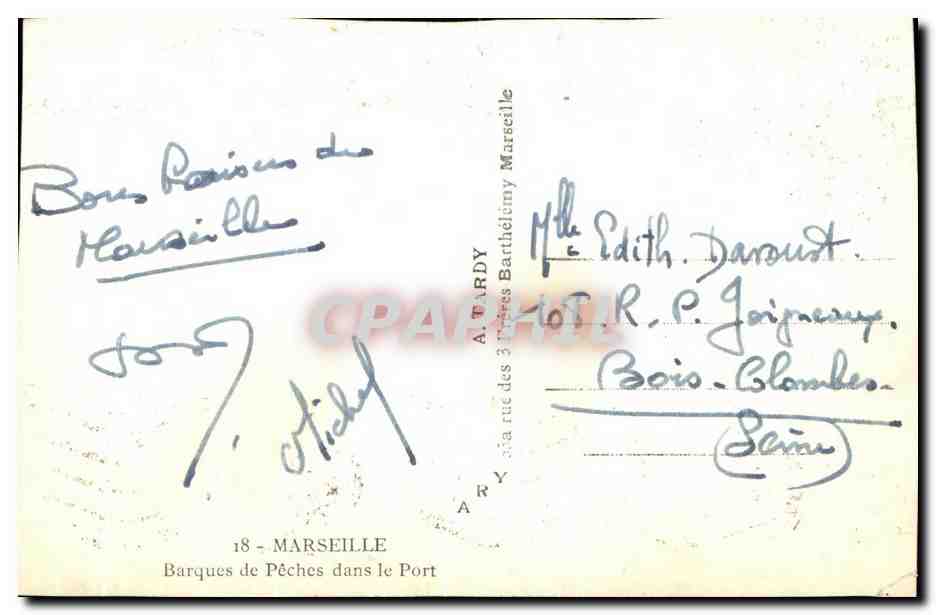 Bons Baisers de
Marseille
Michel
18 - MARSEILLE
Barques de Pêches dans le Port
A. TARDY
rue des 3 Frères Barthélémy Marseille
ARY
CPAPHIL
Mlle Edith. Davoust.
R. P. Joigneaux.
Bois-Colombes
(Seine)